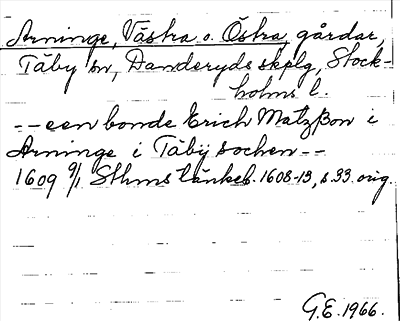 Arninge, Västra o. Östra gårdar,
Täby sn, Danderyds skplg, Stock-
holms l.
-- een bonde Erich Matzßon i
Arninge i Täbÿ sochen --
1609 9/1 Sthms tänkeb. 1608-13, s 33 orig.
G.E. 1966.